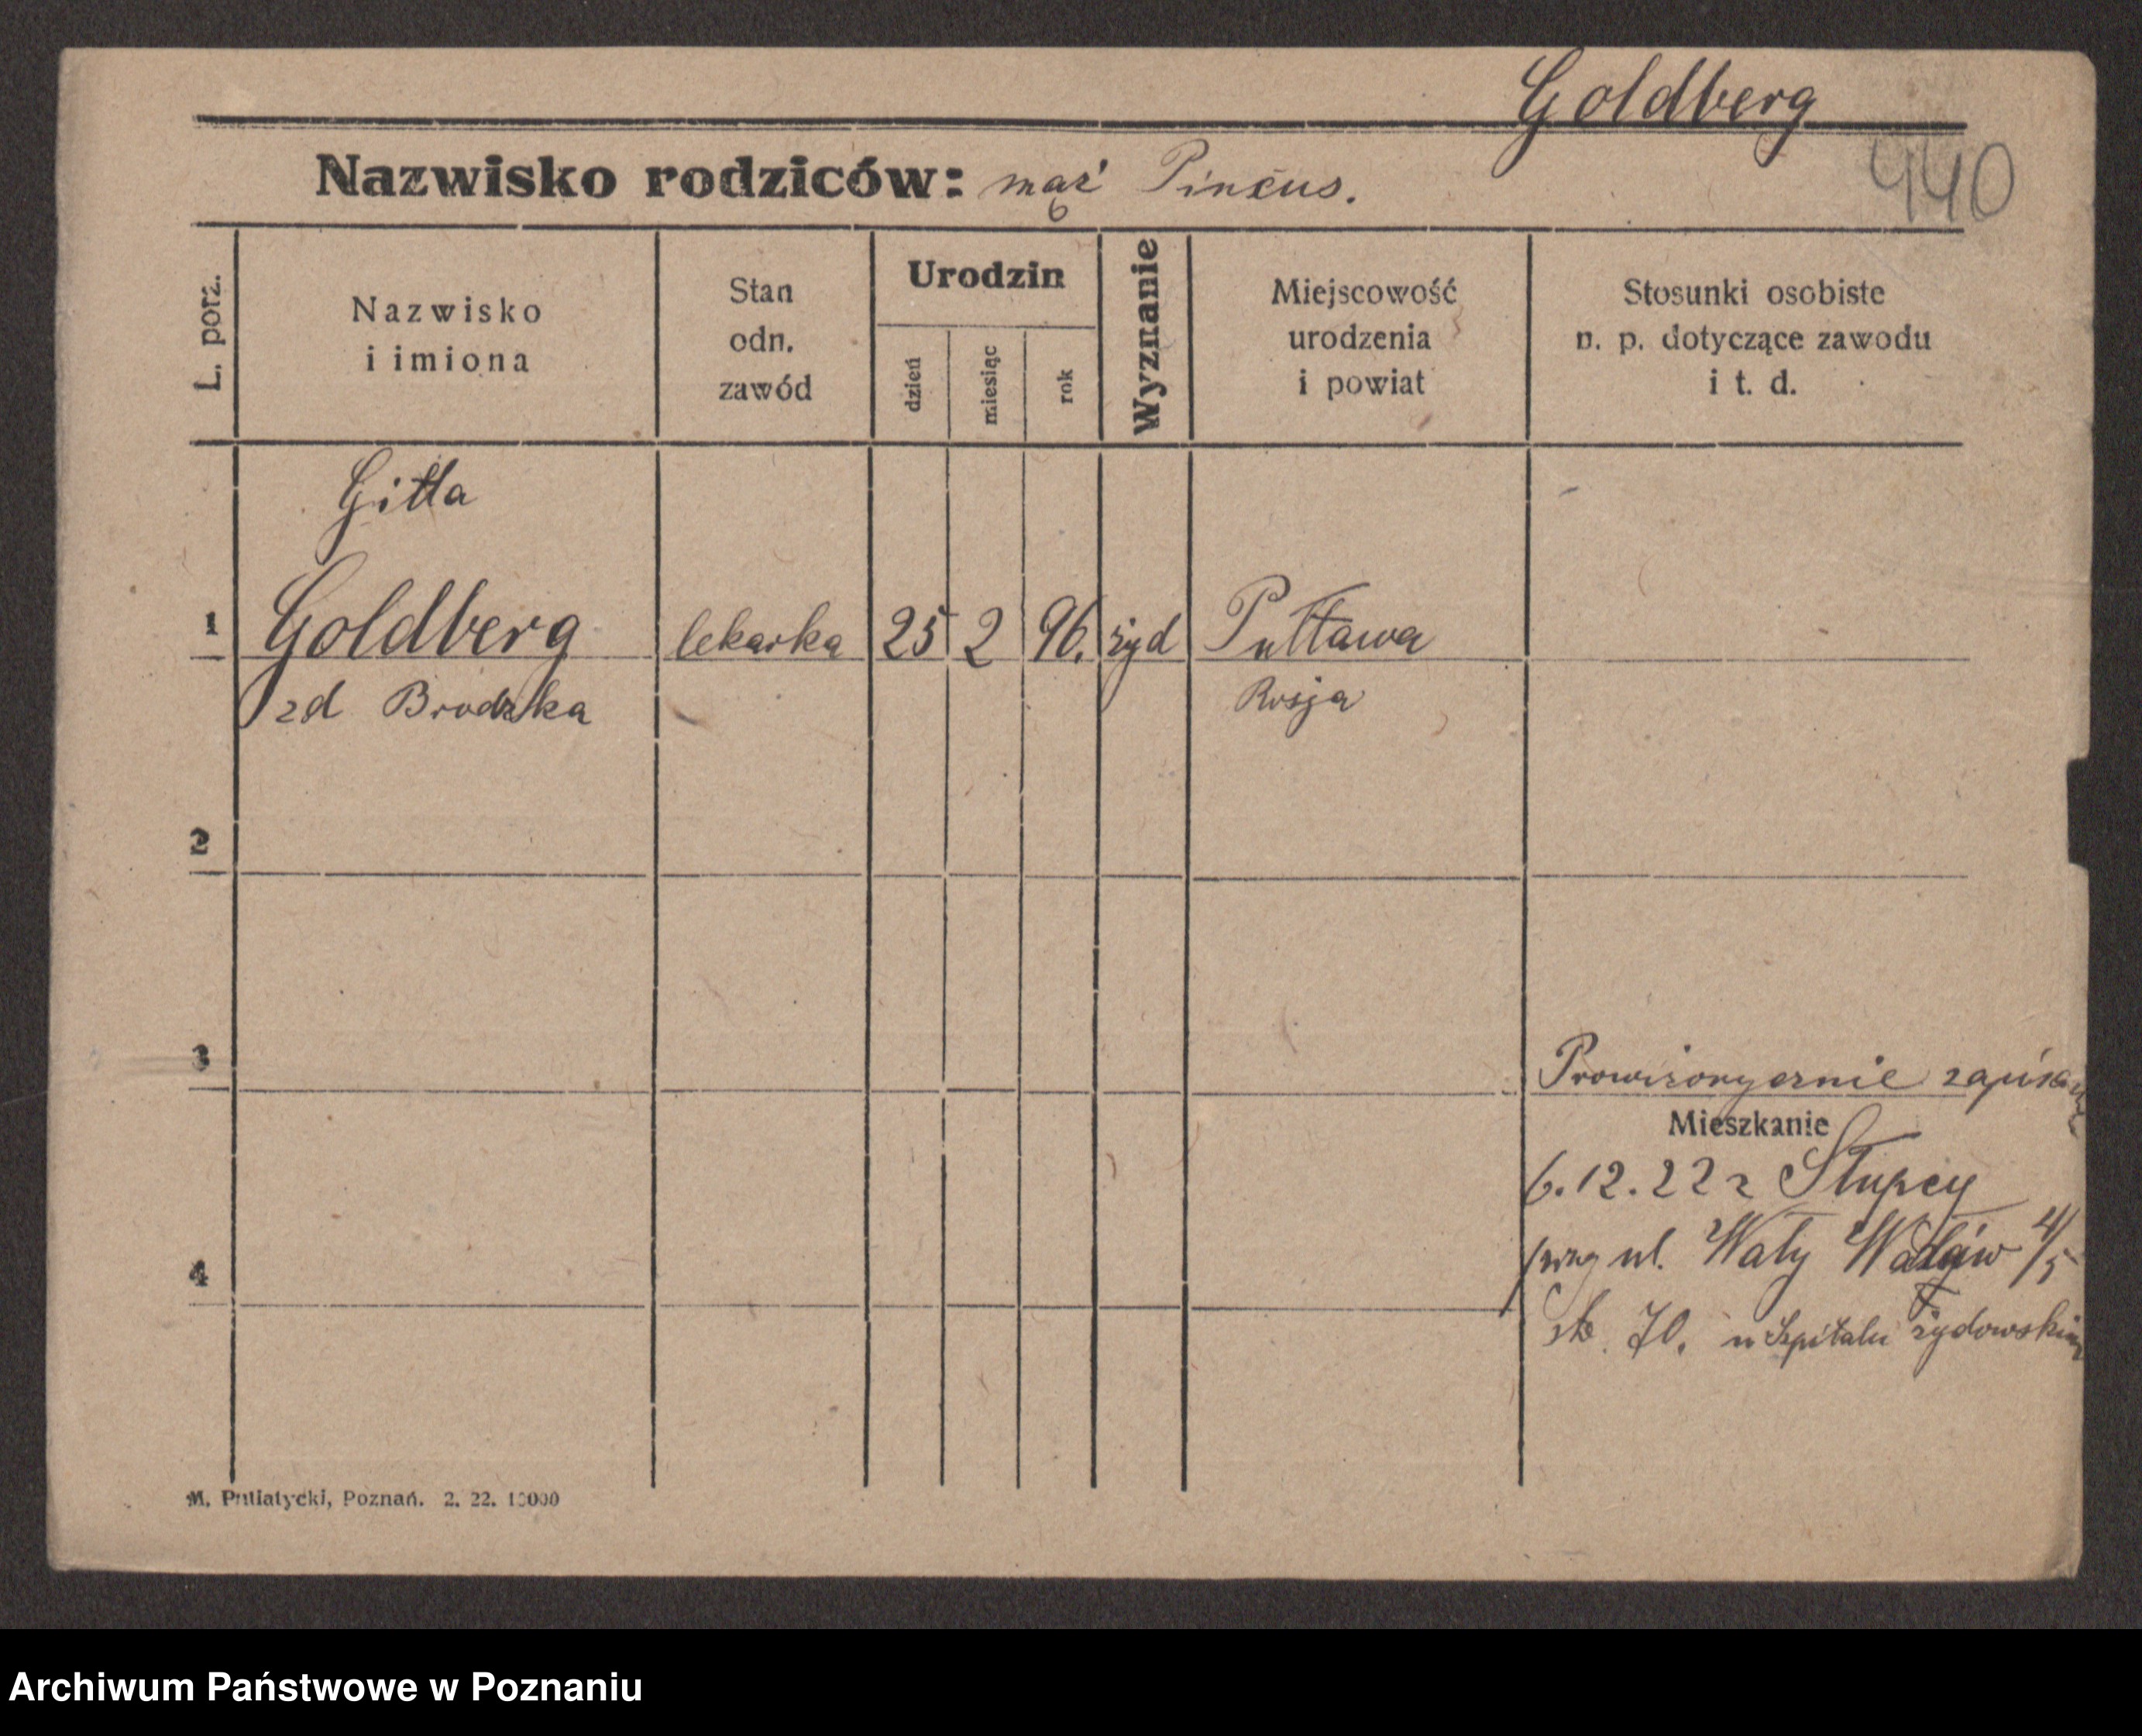 Goldberg
Nazwisko rodziców: mąż Pincus.
440
L. porz.
Nazwisko
i imiona
Stan
odn.
zawód
Urodzin
dzień
miesiąc
rok
Wyznanie
Miejscowość
urodzenia
i powiat
Stosunki osobiste
n. p. dotyczące zawodu
i t. d.
Gitla
1 Goldberg lekarka 25 2 96. żyd Pułtawa
zd Brodzka Rosja
2
3
Prowizorycznie
Mieszkanie
6.12.22 z Słupcy
4
ul. Wały
70. w szpitalu żydowskim
M. Putiatycki, Poznań. 2. 22. 10000
Archiwum Państwowe w Poznaniu